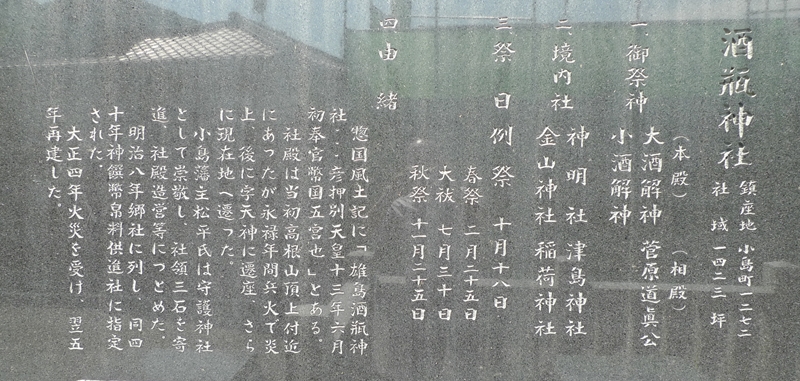 酒瓶神社
鎮座地 小島町一二七二
社域 一四二三坪
(本殿) (相殿)
一、御祭神 大酒解神 菅原道眞公
小酒解神
二、境内社 神明社 津島神社
金山神社 稲荷神社
三、祭日 例祭 十月十八日
春祭 二月二十五日
大祓 七月三十日
秋祭 十一月二十五日
四、由緒
惣国風土記に「雄島酒瓶神
社・・彦押別天皇十三年六月
初奉官幣国五宮也」とある。
社殿は当初高根山頂上付近
にあったが永禄年間兵火で災
上、後に字天神に遷座、さら
に現在地へ遷った。
小島藩主松平氏は守護神社
として崇敬し、社領三石を寄
進、社殿造営等につとめた。
明治八年郷社に列し、同四
十年神饌幣帛料供進社に指定
された。
大正四年火災を受け、翌五
年再建した。